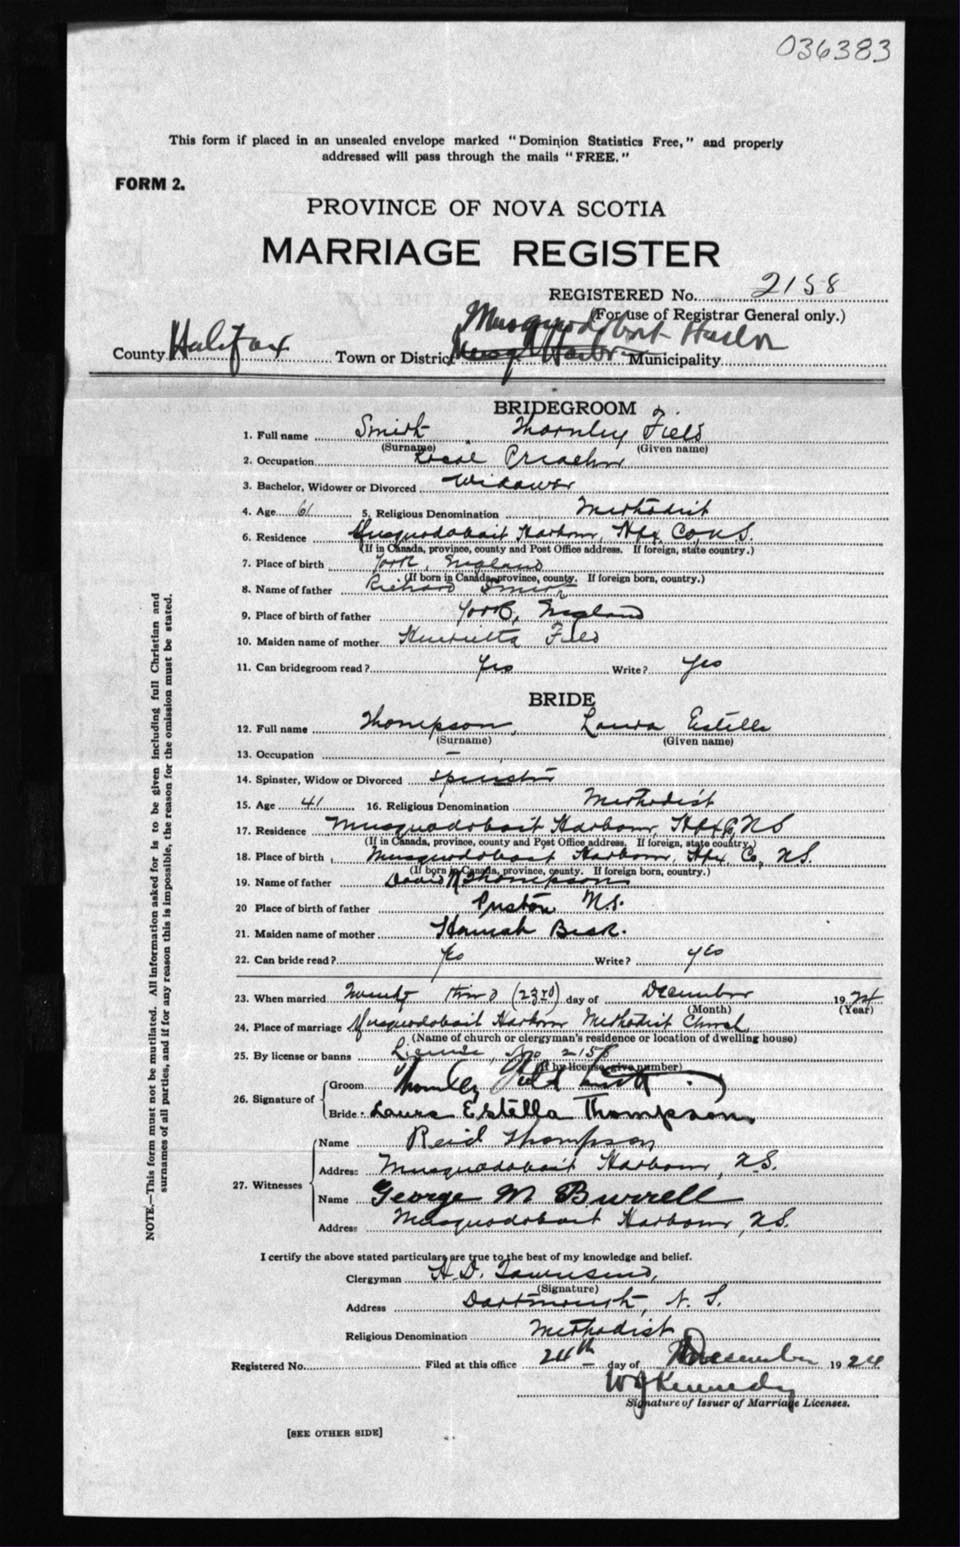 036383
This form if placed in an unsealed envelope marked "Dominion Statistics Free," and properly
addressed will pass through the mails "FREE."
FORM 2.
PROVINCE OF NOVA SCOTIA
MARRIAGE REGISTER
REGISTERED No. 2158
(For use of Registrar General only.)
Musquodoboit Harbor
County Halifax Town or District Musq Harbor Municipality
BRIDEGROOM
1. Full name Smith Thornley Field
(Surname) (Given name)
2. Occupation Local Preacher
3. Bachelor, Widower or Divorced Widower
4. Age 61 5. Religious Denomination Methodist
6. Residence Musquodoboit Harbour, Hfx Co, N.S.
(If in Canada, province, county and Post Office address. If foreign, state country.)
7. Place of birth York, England
(If born in Canada, province, county. If foreign born, country.)
8. Name of father Richard Smith
9. Place of birth of father York, England
10. Maiden name of mother Henrietta Field
11. Can bridegroom read? Yes Write? Yes
BRIDE
12. Full name Thompson, Laura Estella
(Surname) (Given name)
13. Occupation —
14. Spinster, Widow or Divorced Spinster
15. Age 41 16. Religious Denomination Methodist
17. Residence Musquodoboit Harbour, Hfx Co, NS
(If in Canada, province, county and Post Office address. If foreign, state country.)
18. Place of birth Musquodoboit Harbour, Hfx Co, N.S.
(If born in Canada, province, county. If foreign born, country.)
19. Name of father Thompson
20 Place of birth of father Preston N.S.
21. Maiden name of mother Hannah
22. Can bride read? Yes Write? yes
23. When married Twenty third (23rd) day of December 1924
(Month) (Year)
24. Place of marriage Musquodoboit Harbour Methodist Church
(Name of church or clergyman's residence or location of dwelling house)
25. By license or banns License, No 2158
(If by license, give number)
26. Signature of Groom Thornley Field Smith
Bride Laura Estella Thompson
27. Witnesses Name Reid Thompson
Address Musquodoboit Harbour, N.S.
Name George M Burrell
Address Musquodoboit Harbour, N.S.
I certify the above stated particulars are true to the best of my knowledge and belief.
Clergyman H. D. Townsend,
(Signature)
Address Dartmouth, N. S.
Religious Denomination Methodist
Registered No. Filed at this office 24th — day of December 1924
W J Kennedy
Signature of Issuer of Marriage Licenses.
[SEE OTHER SIDE]
NOTE.—This form must not be mutilated. All information asked for is to be given including full Christian and
surnames of all parties, and if for any reason this is impossible, the reason for the omission must be stated.